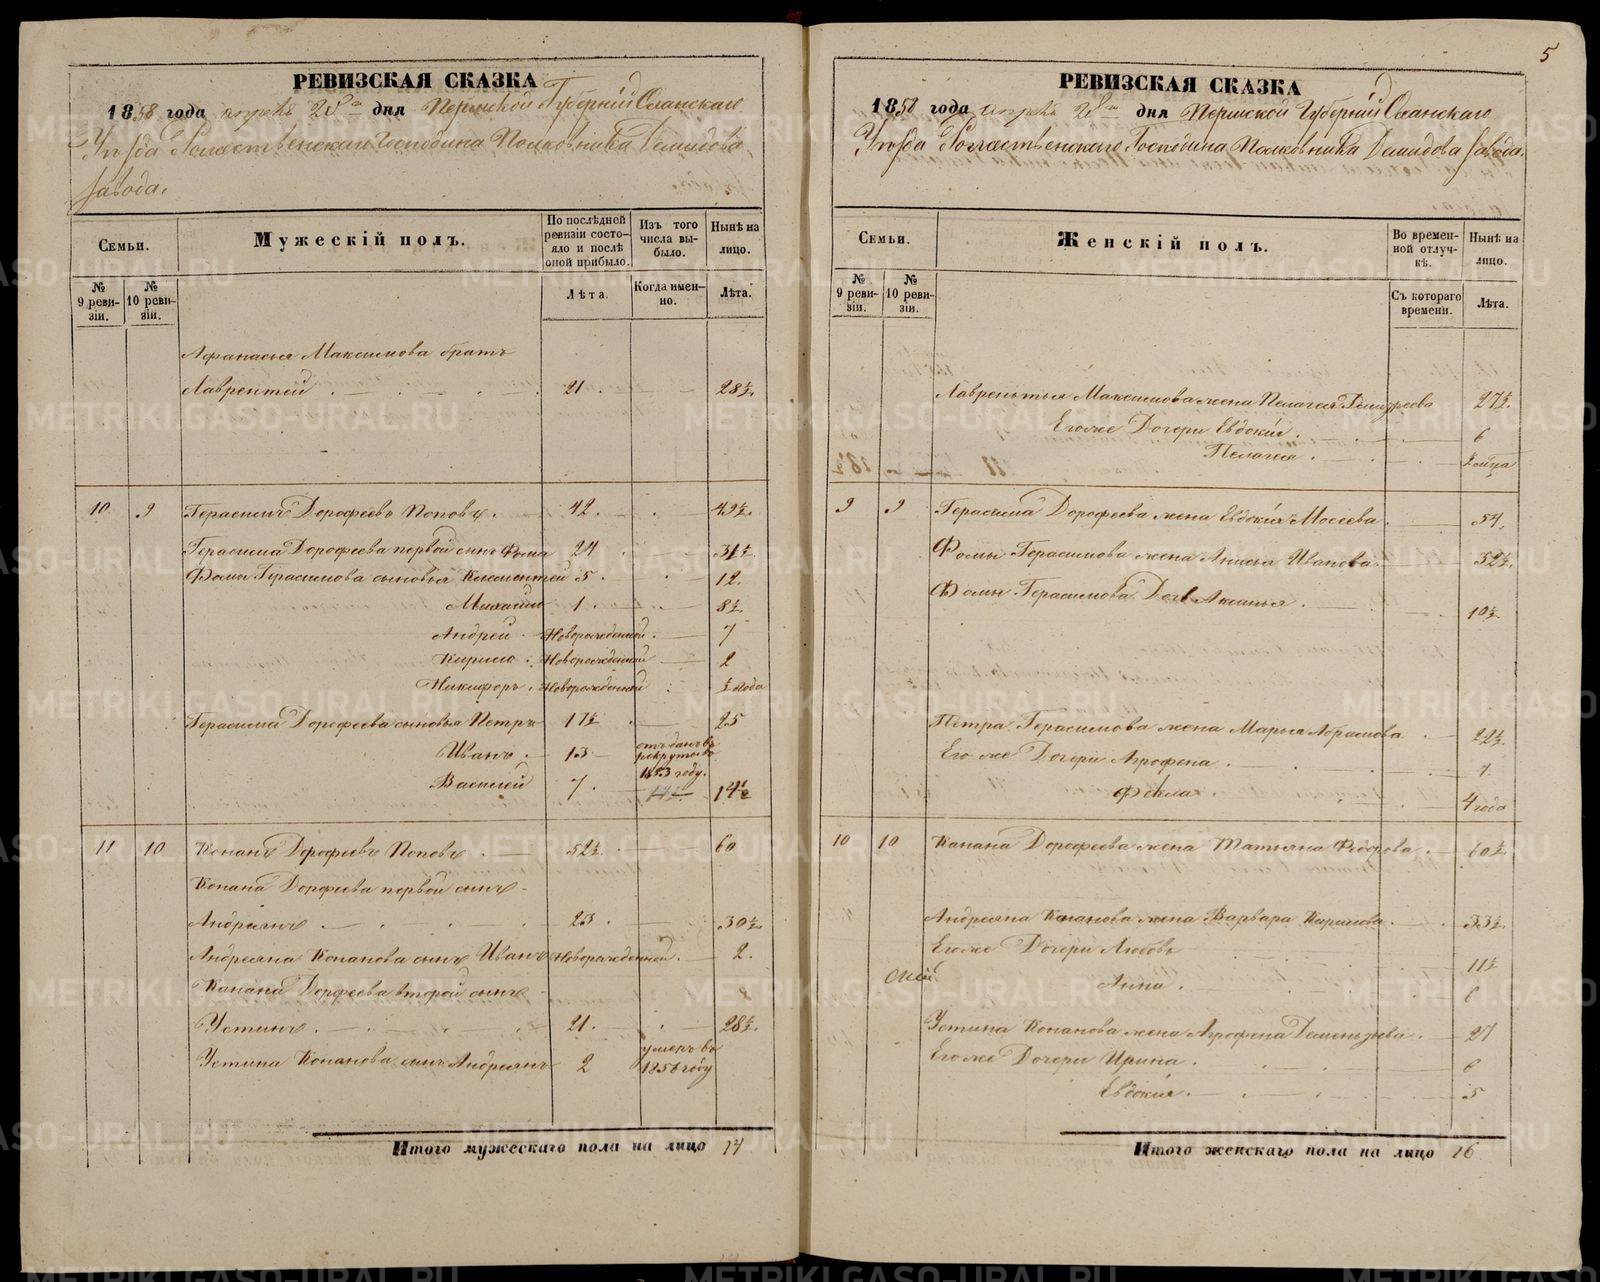 5
РЕВИЗСКАЯ СКАЗКА
1858 года апреля 28го дня Пермской Губерніи Оханскаго
Уѣзда Рождественскаго Господина Полковника Демидова
завода.
Семьи.
№ 9 ревизіи.
№ 10 ревизіи.
Мужескій полъ.
По послѣдней ревизіи состояло и послѣ оной прибыло.
Лѣта.
Изъ того числа выбыло.
Когда именно.
Нынѣ на лицо.
Лѣта.
Афанасья Максимова братъ
Лаврентей 21 28½.
10 9 Герасимъ Дорофеевъ Поповъ. 42. 49½.
Герасима Дорофеева первой сынъ Фома 24 31½.
Фомы Герасимова сыновья Клементей 5. 12.
Михайло 1. 8½
Андрей Новорожденной. 7
Кирило Новорожденной 2
Никифоръ Новорожденной ½ года
Герасима Дорофеева сыновья Петръ 17½ 25
Иванъ 13 отъданъ въ рекруты въ 1853 году.
Василей 7. 14½
11 10 Конанъ Дорофеевъ Поповъ 52½. 60
Конана Дорофеева первой сынъ
Андреянъ 23. 30½.
Андреяна Конанова сынъ Иванъ Новорожденной. 2.
Канана Дорофеева второй сынъ
Устинъ 21. 28½.
Устина Конанова сынъ Андреянъ 2 умеръ въ 1856 году
Итого мужескаго пола на лицо 14
РЕВИЗСКАЯ СКАЗКА
1858 года апреля 28го дня Пермской Губерніи Оханскаго
Уѣзда Рождественскаго Господина Полковника Демидова завода.
Семьи.
№ 9 ревизіи.
№ 10 ревизіи.
Женскій полъ.
Во временной отлучкѣ.
Съ котораго времени.
Нынѣ на лицо.
Лѣта.
Лаврентья Максимова жена Пелагея 27½.
Егоже Дочери Евдокія. 6
Пелагея
9 9 Герасима Дорофеева жена Евдокія Мосеева 54.
Фомы Герасимова жена Анисья Иванова 32½.
Фомы Герасимова Дочь Аксинья 10½.
Петра Герасимова жена Марья Абрамова 22½.
Его же Дочери Агрофена 7.
Фёкла 4 года
10 10 Канана Дорофеева жена Татьяна Федорова 60½.
Андреяна Конанова жена Варвара Кирилова 33½.
Егоже Дочери Любовь 11½
Анна. 6
Устина Конанова жена Агрофена Дементьева 27
Егоже Дочери Ирина. 6
Евдокія. 5
Итого женскаго пола на лицо 16
METRIKI.GASO-URAL.RU